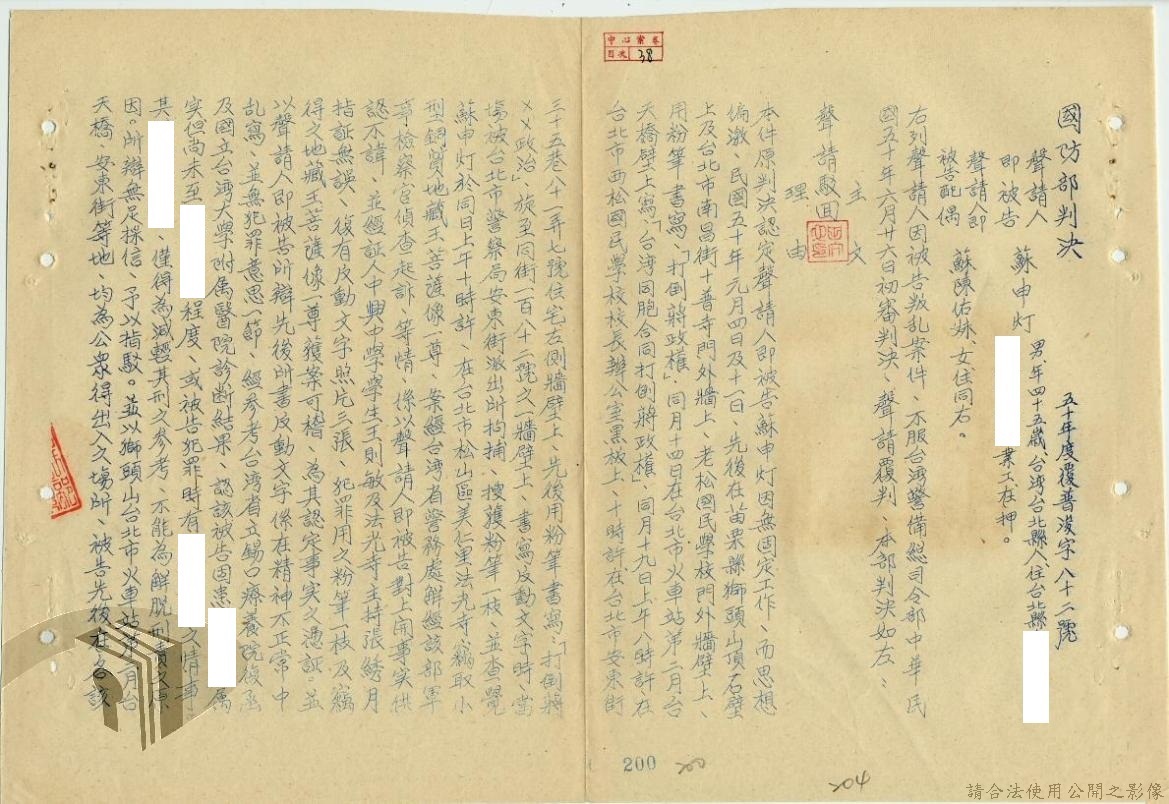 中心案卷
目次 38
國防部判決
五十年度覆普浚字八十二號
聲請人
即被告 蘇申灯 男年四十五歲台湾台北縣人住台北縣
業工在押。
聲請人即
被告配偶 蘇陳佑妹、女住同右。
右列聲請人因被告叛乱案件、不服台湾警備総司令部中華民
國五十年六月廿六日初審判決、聲請覆判、本部判決如左：
主文
聲請駁回
理由
本件原判決認定聲請人即被告蘇申灯因無固定工作、而思想
偏激、民國五十年元月四日及十一日、先後在苗栗縣獅頭山頂石壁
上及台北市南昌街十普寺門外牆上、老松國民學校門外牆壁上、
用粉筆書寫、「打倒蔣政權」、同月十四日在台北市火車站第二月台
天橋壁上寫、「台湾同胞合同打倒蔣政權」、同月十九日上午八時許在
台北市西松國民學校校長辦公室黑板上、十時許在台北市安東街
三十五巷八十一弄七號住宅左側牆壁上、先後用粉筆書寫、「打倒蔣
××政治」、旅至同街一百八十二號之一牆壁上、書寫反動文字時、當
場被台北市警察局安東街派出所拘捕、搜獲粉筆一枝、並查覺
蘇申灯於同日上午十時許、在台北市松山區美仁里法光寺、竊取小
型銅質地藏王菩薩像一尊、案經台湾省警務處解經該部軍
事檢察官偵查起訴、等情、係以聲請人即被告對上開事实供
認不諱、並經証人中興中學學生王則敏及法光寺主持張綉月
指証無誤、復有反動文字照片三張、犯罪用之粉筆一枝及竊
得之地藏王菩薩像一尊獲案可稽、為其認定事实之憑証。並
以聲請人即被告所辯先後所書反動文字係在精神不正常中
乱寫、並無犯罪意思一節、經參考台湾省立錫口療養院復函
及國立台湾大學附屬醫院診断結果、認該被告固患 屬
实但尚未至 程度、或被告犯罪時有 之情事、
其 、僅得為減輕其刑之參考、不能為解脫刑責之原
因。所辯無足採信、予以指駁。並以獅頭山台北市火車站第二月台
天橋、安東街等地、均為公眾得出入之場所、被告先後在各該
200
200
204
請合法使用公開之影像